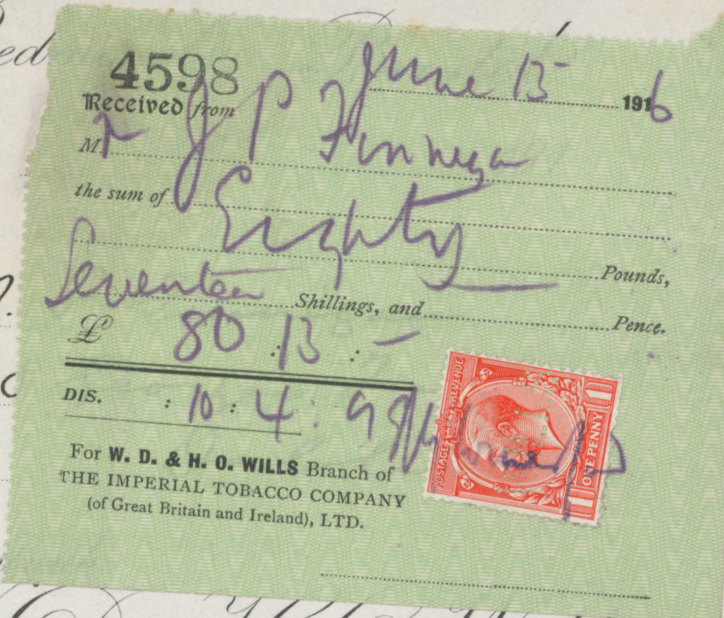 4598
June 15 1916
Received from
Mr J P Finnegan
the sum of Eighty
Pounds,
Seventeen Shillings, and Pence.
£ 80 : 13 : -
DIS. : 10 : 4 :
For W. D. & H. O. WILLS Branch of
THE IMPERIAL TOBACCO COMPANY
(of Great Britain and Ireland), LTD.
POSTAGE REVENUE
ONE PENNY